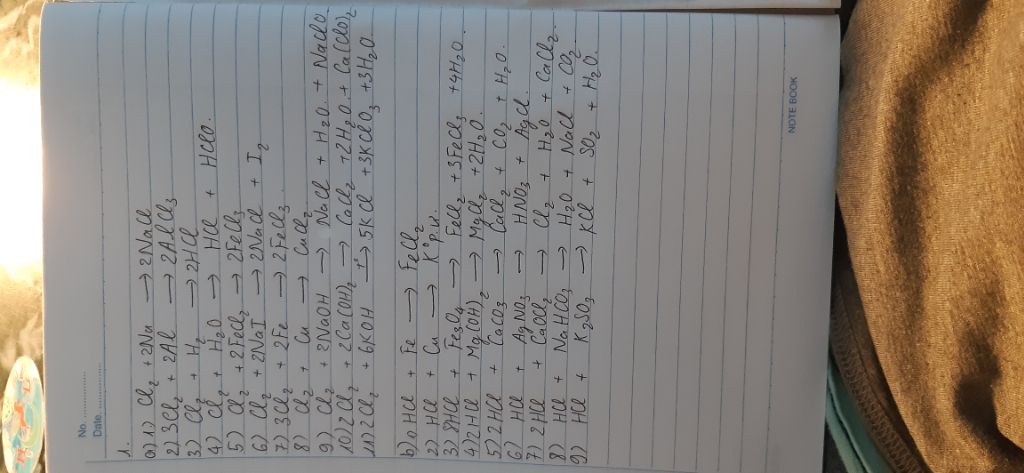 No. ..................
Date ..................
1.
a) 1) Cl₂ + 2Na → 2NaCl
2) 3Cl₂ + 2Al → 2AlCl₃
3) Cl₂ + H₂ → 2HCl
4) Cl₂ + H₂O → HCl + HClO.
5) Cl₂ + 2FeCl₂ → 2FeCl₃
6) Cl₂ + 2NaI → 2NaCl + I₂
7) 3Cl₂ + 2Fe → 2FeCl₃
8) Cl₂ + Cu → CuCl₂
9) Cl₂ + 2NaOH → NaCl + H₂O + NaClO
10) 2Cl₂ + 2Ca(OH)₂ → CaCl₂ + 2H₂O + Ca(ClO)₂
11) 2Cl₂ + 6KOH → 5KCl + 3KClO₃ + 3H₂O
b) HCl + Fe → FeCl₂
2) HCl + Cu → K° p.ư.
3) 8HCl + Fe₃O₄ → FeCl₂ + 3FeCl₃ + 4H₂O.
4) 2HCl + Mg(OH)₂ → MgCl₂ + 2H₂O.
5) 2HCl + CaCO₃ → CaCl₂ + CO₂ + H₂O.
6) HCl + AgNO₃ → HNO₃ + AgCl.
7) 2HCl + CaOCl₂ → Cl₂ + H₂O + CaCl₂.
8) HCl + NaHCO₃ → H₂O + NaCl + CO₂
9) HCl + K₂SO₃ → KCl + SO₂ + H₂O.
NOTE BOOK